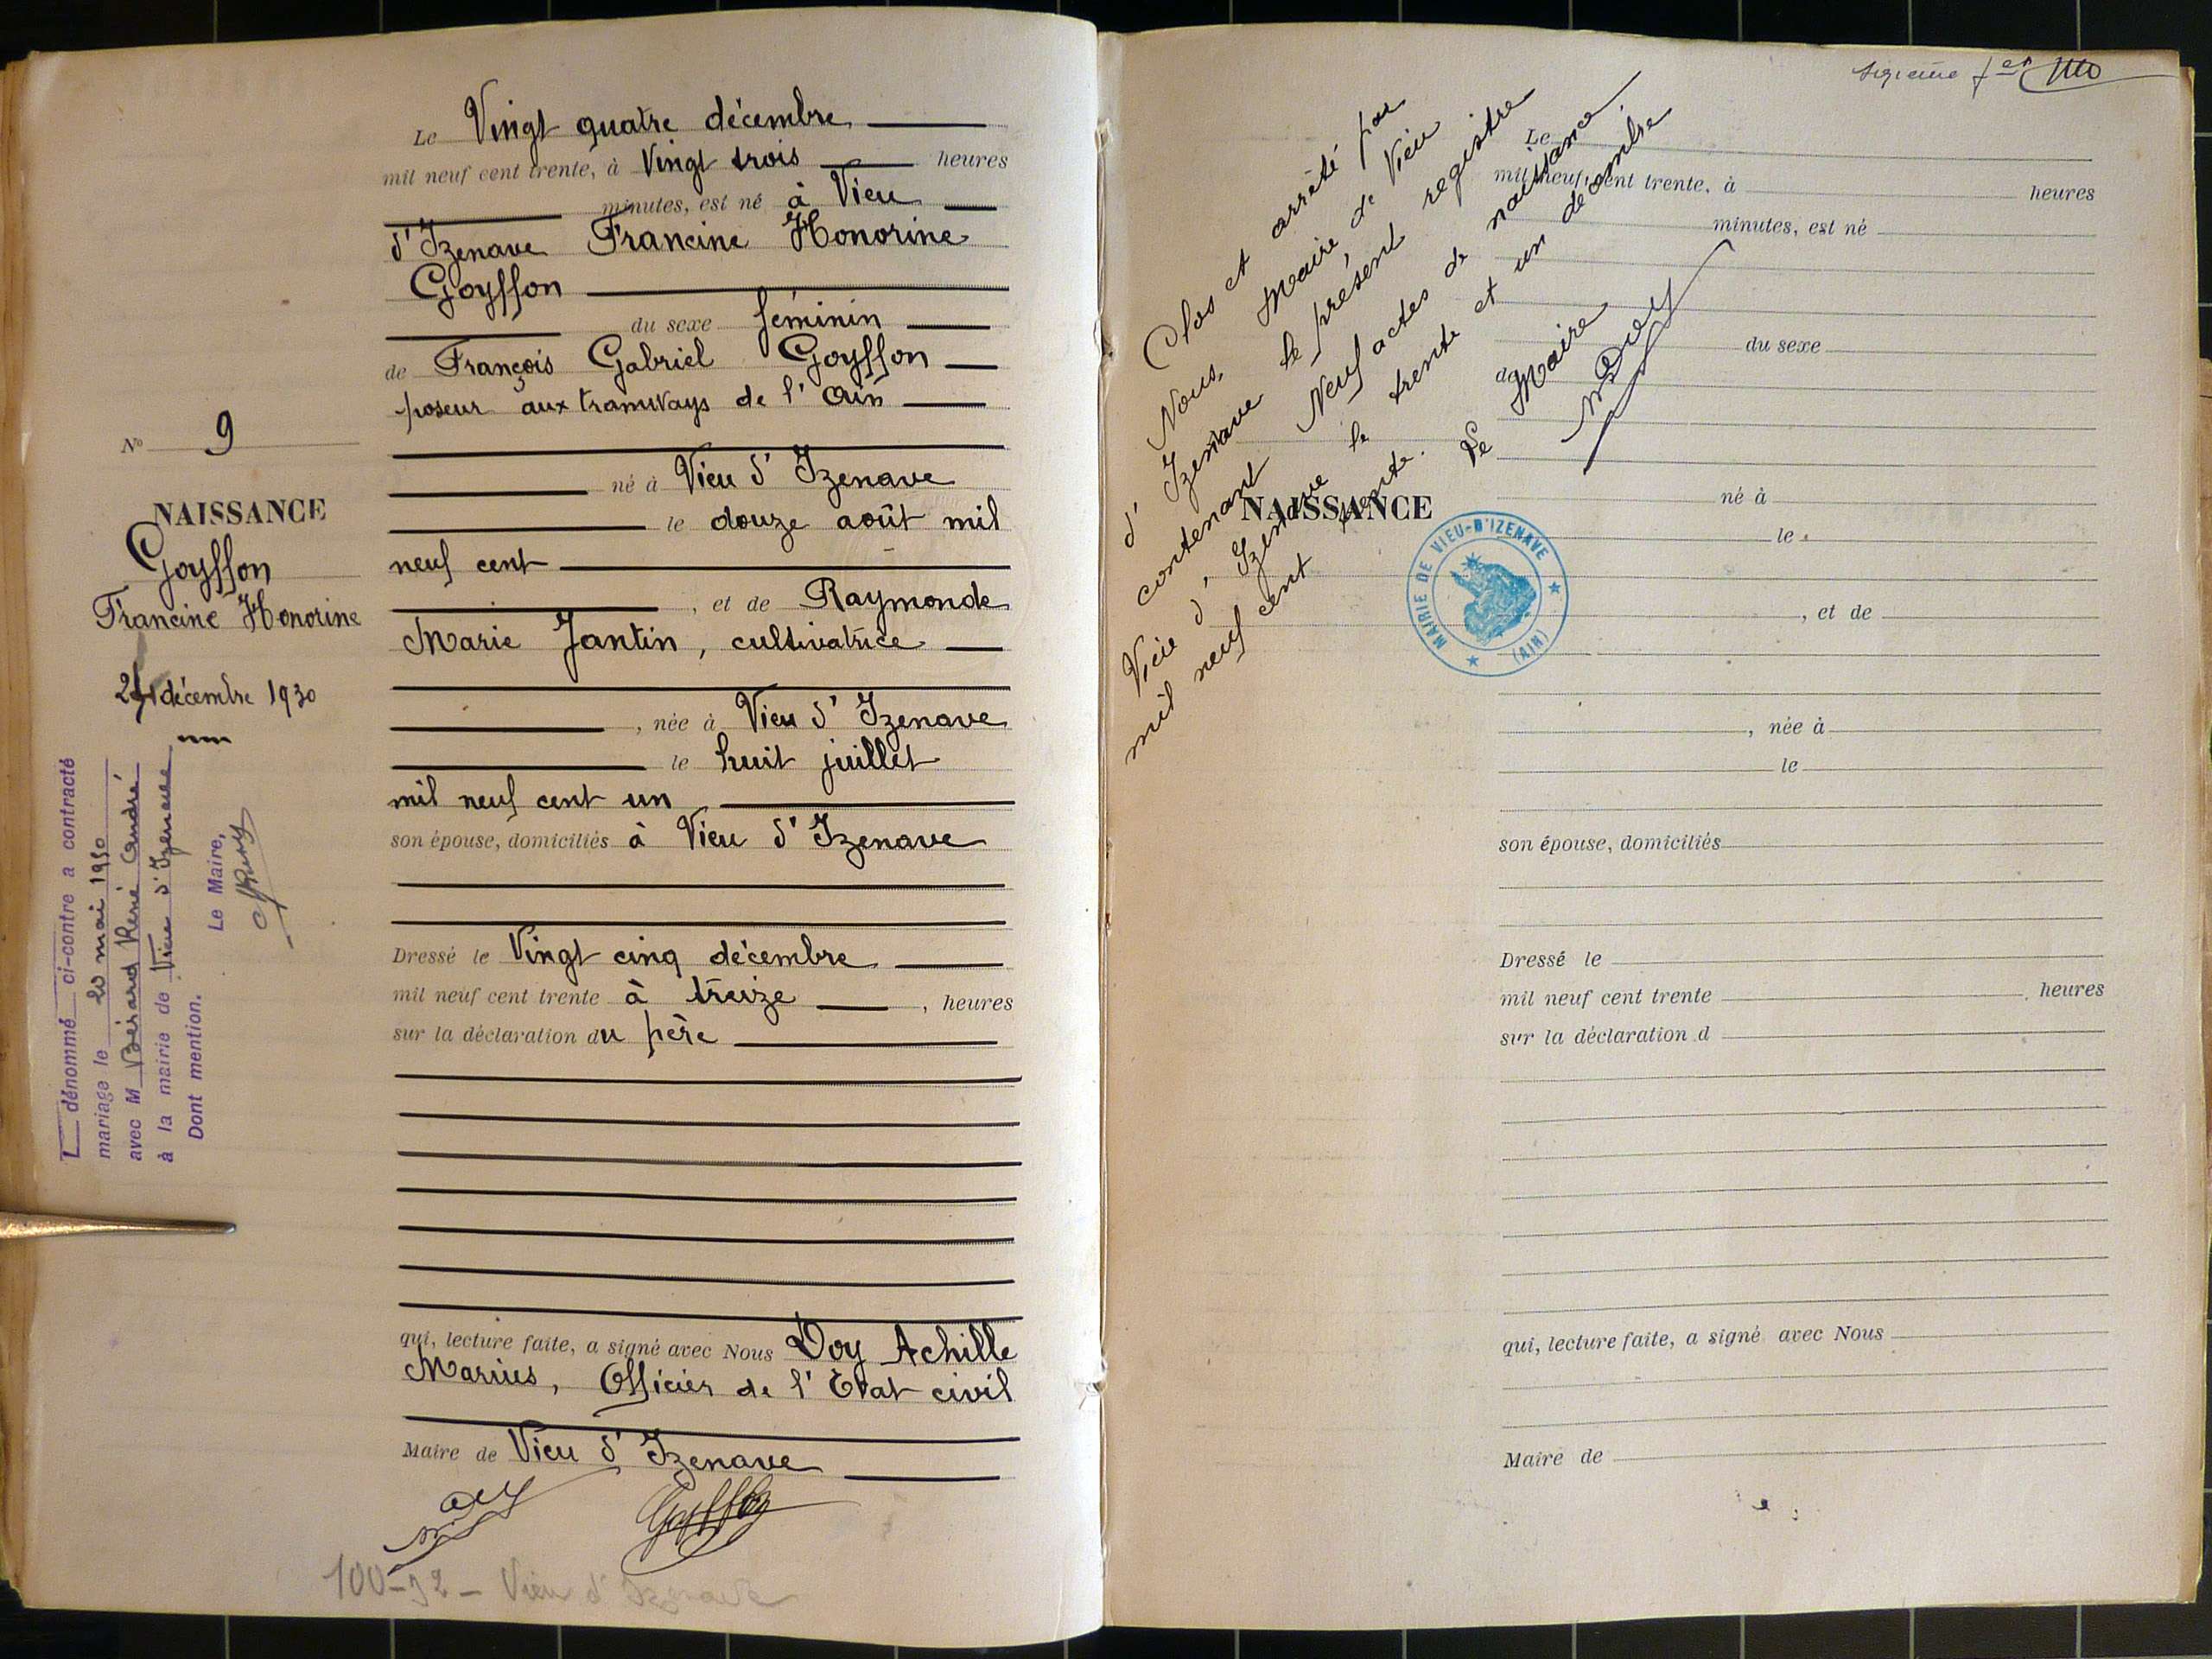 Le Vingt quatre décembre
mil neuf cent trente, à Vingt trois heures
minutes, est né à Vieu
d'Izenave Francine Honorine
Goyffon
du sexe féminin
de François Gabriel Goyffon
poseur aux tramways de l'Ain
né à Vieu d'Izenave
le douze août mil
neuf cent
, et de Raymonde
Marie Jantin, cultivatrice
, née à Vieu d'Izenave
le huit juillet
mil neuf cent un
son épouse, domiciliés à Vieu d'Izenave
Dressé le Vingt cinq décembre
mil neuf cent trente à treize , heures
sur la déclaration du père
qui, lecture faite, a signé avec Nous Doy Achille
Marius, Officier de l'Etat civil
Maire de Vieu d'Izenave
Goyffon
100-32 - Vieu d'Izenave
N° 9
NAISSANCE
Goyffon
Francine Honorine
24 décembre 1930
L dénommé ci-contre a contracté
mariage le 20 mai 1950
avec M Bérard René André
à la mairie de Vieu d'Izenave
Dont mention.
Le Maire,
Sixième
Clos et arrêté par
Nous, Maire de Vieu
d'Izenave le présent registre
contenant Neuf actes de naissance.
Vieu d'Izenave le trente et un décembre
mil neuf cent trente. Le Maire
M Doy
NAISSANCE
MAIRIE DE VIEU-D'IZENAVE
(AIN)
Le
mil neuf cent trente, à heures
minutes, est né
du sexe
de
né à
le
, et de
, née à
le
son épouse, domiciliés
Dressé le
mil neuf cent trente , heures
sur la déclaration d
qui, lecture faite, a signé avec Nous
Maire de